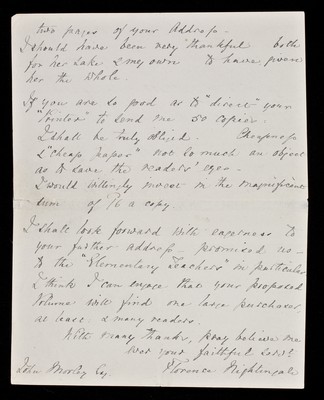 two pages of your Address -
I should have been very thankful both
for her sake & my own to have given
her the whole.
If you are so good as to "direct" your
"Printer" to send me 50 copies.
I shall be truly obliged. Cheapness
& "cheap paper" not so much an object
as to save the readers' eyes -
I would willingly invest in the magnificent
sum of a copy.
I shall look forward with eagerness to
your further address promised us -
to the "Elementary Teachers" in particular
I think I can engage that your proposed
Volume will find one large purchaser,
at least & many readers.
With many thanks, pray believe me
ever your faithful Servt
Florence Nightingale
John Morley Esq.